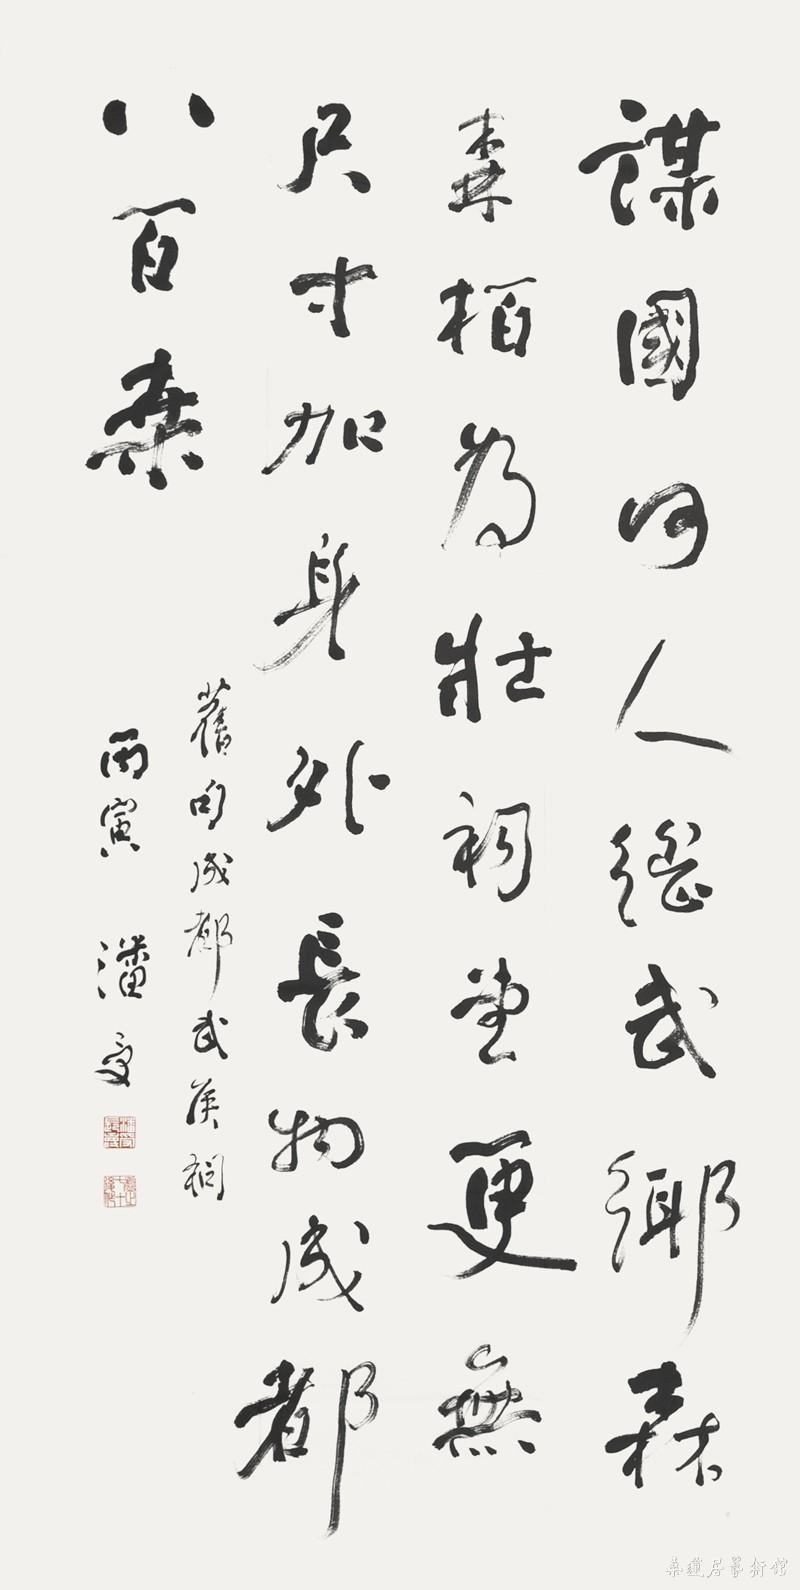 謀國何人繼武鄉森
森柏為壯祠堂更無
尺寸加身外長物成都
八百桑
舊句成都武侯祠
丙寅 潘受
桑蓮居藝術館